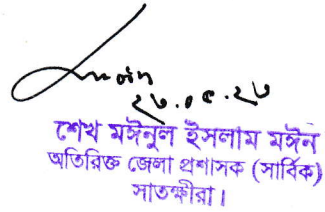 ২৩.০৫.২৩
শেখ মঈনুল ইসলাম মঈন
অতিরিক্ত জেলা প্রশাসক (সার্বিক)
সাতক্ষীরা।